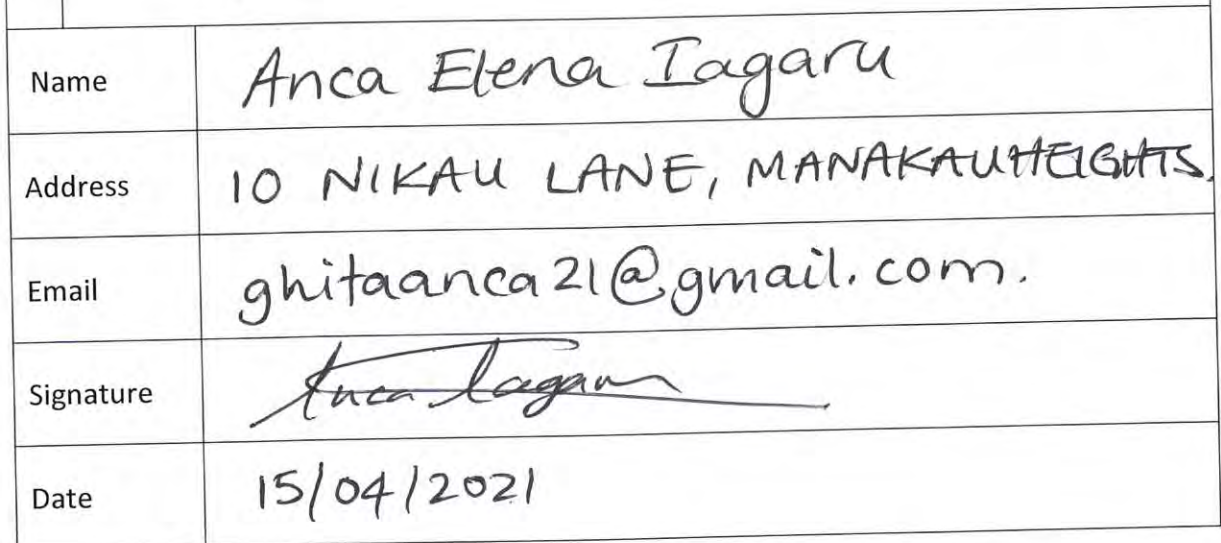 Name Anca Elena Iagaru
Address 10 NIKAU LANE, MANAKAU HEIGHTS.
Email ghitaanca21@gmail.com.
Signature Anca Iagaru
Date 15/04/2021